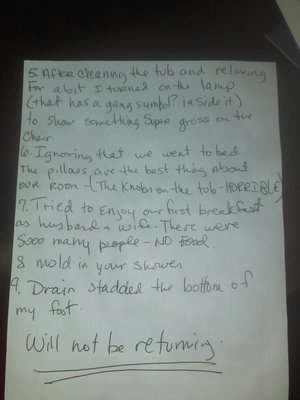 5. After cleaning the tub and relaxing
for a bit I turned on the lamp
(that has a gang symbol? inside it)
to show something super gross on the
chair.
6. Ignoring that we went to bed.
The pillows are the best thing about
our room - (The knobs on the tub - HORRIBLE)
7. Tried to enjoy our first breakfast
as husband & wife. There were
Sooo many people - NO Food.
8 mold in your shower
9. Drain stadded the bottom of
my foot.
Will not be returning.